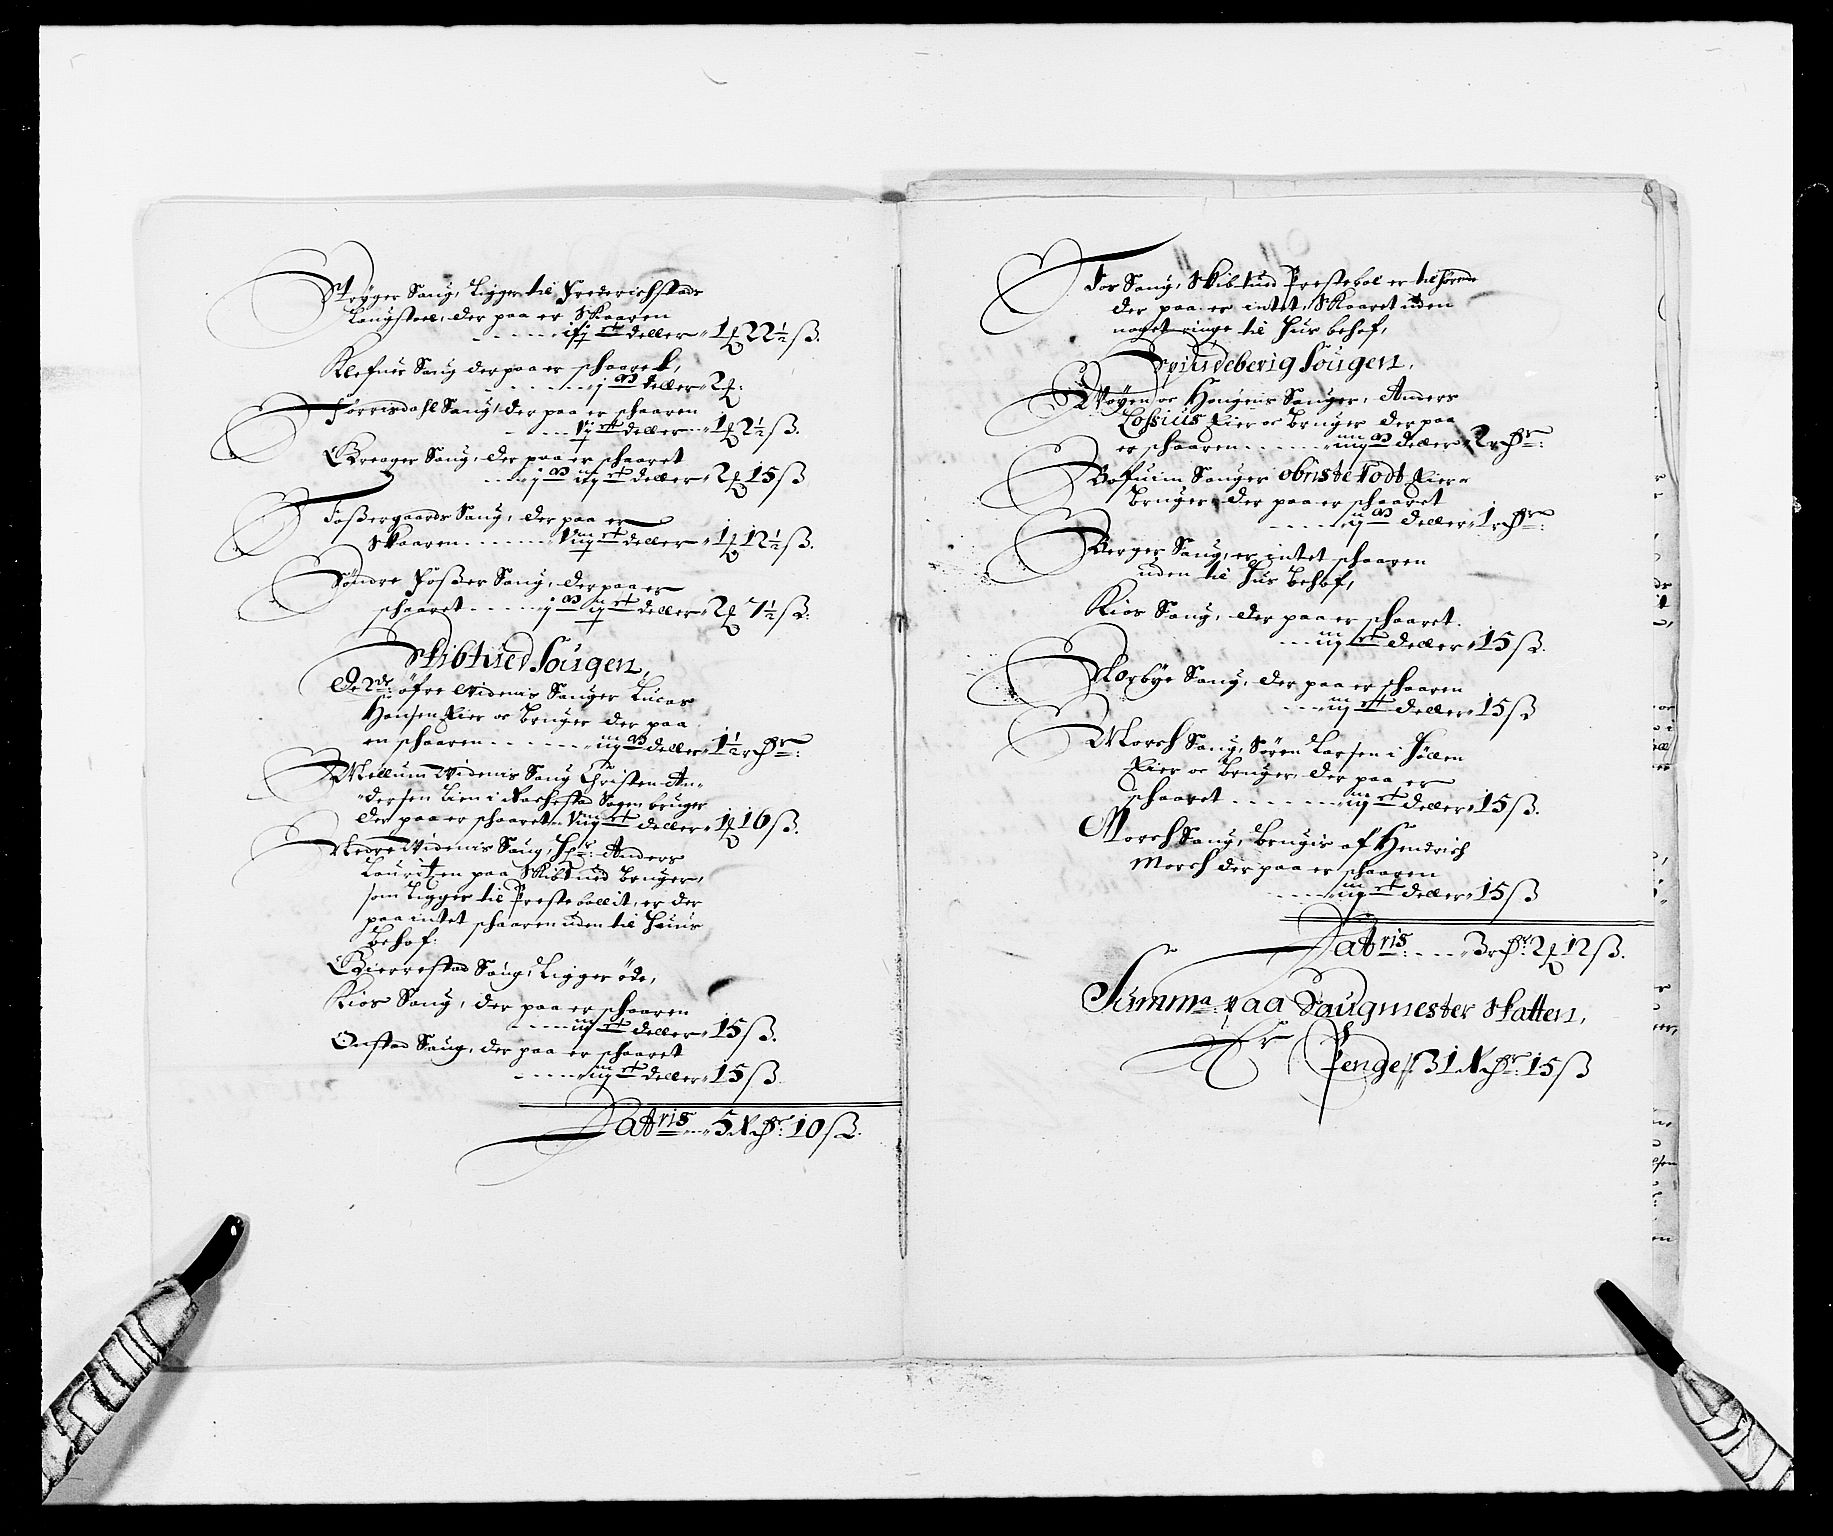 Stryger Saug, ligger til Frederichstads
Laugstoel, der paa er Skaaren
deller 1 22½ ß.
Klefnes Saug der paa er schaaret,
j deller 2
Torrisdahl Saug, der paa er schaaren
Vj deller 1 2½ ß.
Greager Saug, der paa er schaaret
j iiij deller 2 15 ß
Foßergaards Saug, der paa er
Skaaren Viij deller 1 12½ ß.
Søndre Foßer Saug, der paa er
schaaret j ij deller 2 7½ ß.
Skibtued Sougen,
De 2de øfre Videnis Sauger Lucas
Hansen Eier oc bruger der paa
er schaaren iij deller 1½ rchr:
Mellum Videnis Saug Christen An-
dersen Lien i Rachestad Sogen bruger
der paa er schaaret Viij deller 1 16 ß.
Nedre Videnis Saug, Hr: Anders
Lauritzen paa Skibtued bruger,
som ligger til Prestebollit, er der
paa intet schaaren uden til Huus
behof:
Gierrestad Saug, ligger øde,
Kios Saug, der paa er schaaren
iij deller 15 ß.
Onstad Saug, der paa er schaaret
iij deller 15 ß.
Latris 5 Rchr: 10 ß.
Fos Saug, Skibtued Prestebol er tilhørende
der paa er intet Skaaret uden
noget ringe til Hus behof,
Spindeberig Sougen,
Møyen oc Haugens Sauger, Anders
Lossius Eier oc bruger der paa
er schaaren iiij deller 2 rchr:
Sauger obriste Todt Eier
bruger, der paa er schaaret
ij deller 1 rchr:
Berger Saug, er intet schaaren
uden til Hus behof,
Kios Saug, der paa er schaaret
iij deller 15 ß.
Norbye Saug, der paa er schaaren
iij deller 15 ß
Morch Saug, Søren Larsen i Høllen
Eier oc bruger, der paa er
schaaret iij deller 15 ß.
Morch Saug, brugis af Hendrich
Morch der paa er schaaren
iij deller 15 ß
Latris 3 rchr: 2 12 ß.
Summa paa Saugmester Skatten,
Er
Penge 31 Rchr: 15 ß